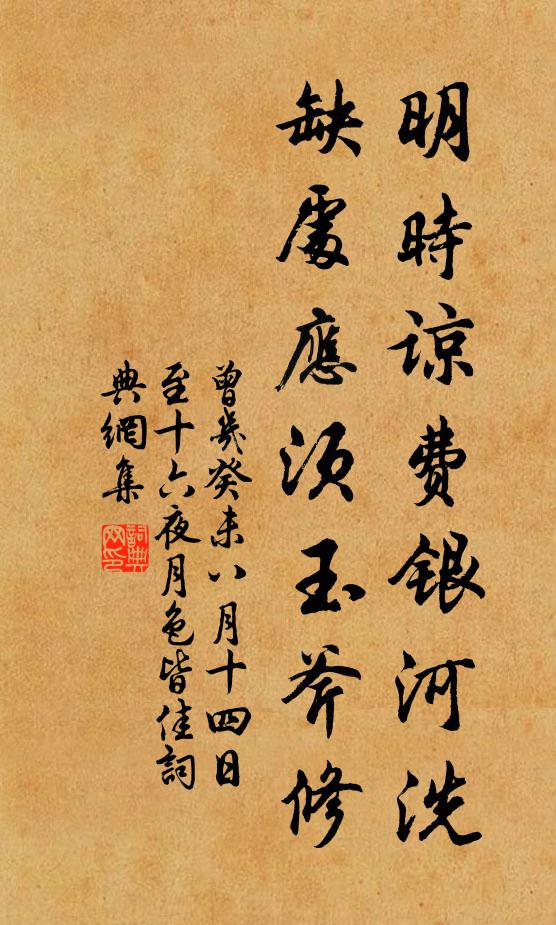 明時諒費銀河洗
缺處應須玉斧修
曾幾癸未八月十四日
至十六夜月色皆佳詞
典網集
詞典
网印